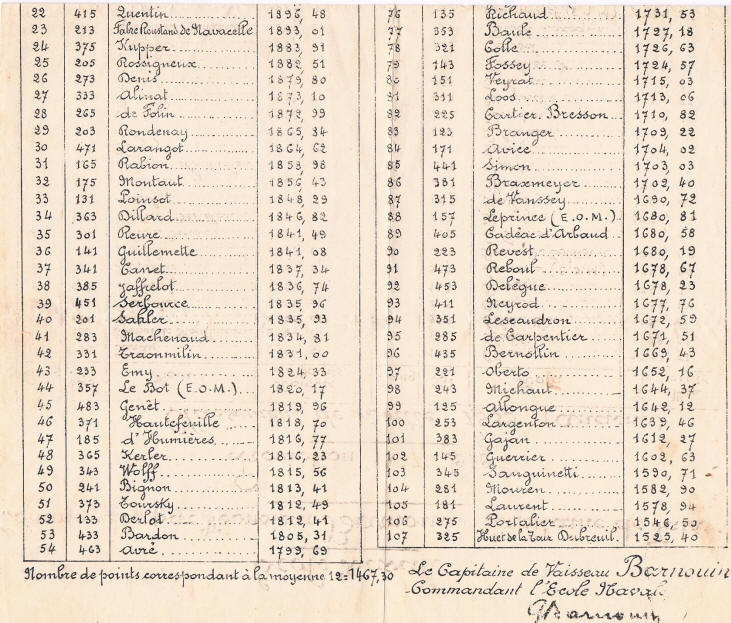 22 415 Quentin 1896, 48
23 213 Fabre Roustand de Navacelle 1893, 01
24 375 Kupper 1883, 91
25 205 Rossigneux 1882, 51
26 273 Denis 1879, 80
27 333 Alinat 1873, 10
28 265 de Folin 1872, 99
29 203 Rondenay 1865, 84
30 471 Larangot 1864, 62
31 165 Rabion 1858, 98
32 175 Montaut 1856, 43
33 131 Loinsot 1848, 29
34 363 Dillard 1846, 82
35 301 Reure 1841, 49
36 141 Guillemette 1841, 08
37 341 Canet 1837, 34
38 385 Jaffrelot 1836, 74
39 451 Serbource 1835, 96
40 201 Sahler 1835, 93
41 283 Machenaud 1834, 81
42 331 Traonmilin 1831, 00
43 233 Emy 1824, 33
44 357 Le Bot (E.O.M.) 1820, 17
45 483 Genêt 1819, 96
46 371 Hautefeuille 1818, 70
47 185 d'Humières 1816, 77
48 365 Kerler 1816, 23
49 343 Wolff 1815, 56
50 241 Bignon 1813, 41
51 373 Toursky 1812, 49
52 133 Derlot 1812, 41
53 433 Bardon 1805, 31
54 463 Avré 1799, 69
76 135 Richaud 1731, 53
77 353 Baule 1727, 18
78 321 Colle 1726, 63
79 143 Fossey 1724, 57
80 151 Veyrat 1715, 03
81 311 Loos 1713, 06
82 225 Cartier. Bresson 1710, 82
83 123 Branger 1709, 22
84 171 Avice 1704, 02
85 441 Simon 1703, 03
86 381 Braxmeyer 1702, 40
87 315 de Vanssey 1690, 72
88 157 Leprince (E.O.M.) 1680, 81
89 405 Cadéac d'Arbaud 1680, 58
90 223 Revest 1680, 19
91 473 Reboul 1678, 67
92 453 Delègue 1678, 23
93 411 Neyrod 1677, 76
94 351 Lescandron 1672, 59
95 285 de Carpentier 1671, 51
96 435 Bernollin 1669, 43
97 221 Oberto 1652, 16
98 243 Michaut 1644, 37
99 125 Allongue 1642, 12
100 253 Largenton 1639, 46
101 383 Gajan 1612, 27
102 145 Guerrier 1602, 63
103 345 Sanguinetti 1590, 71
104 281 Mouren 1582, 90
105 181 Laurent 1578, 94
106 275 Portalier 1546, 50
107 325 Huet de la Tour Dubreuil 1523, 40
Nombre de points correspondant à la moyenne 12 = 1467,30
Le Capitaine de Vaisseau Barnouin
Commandant l'Ecole Navale
Barnouin